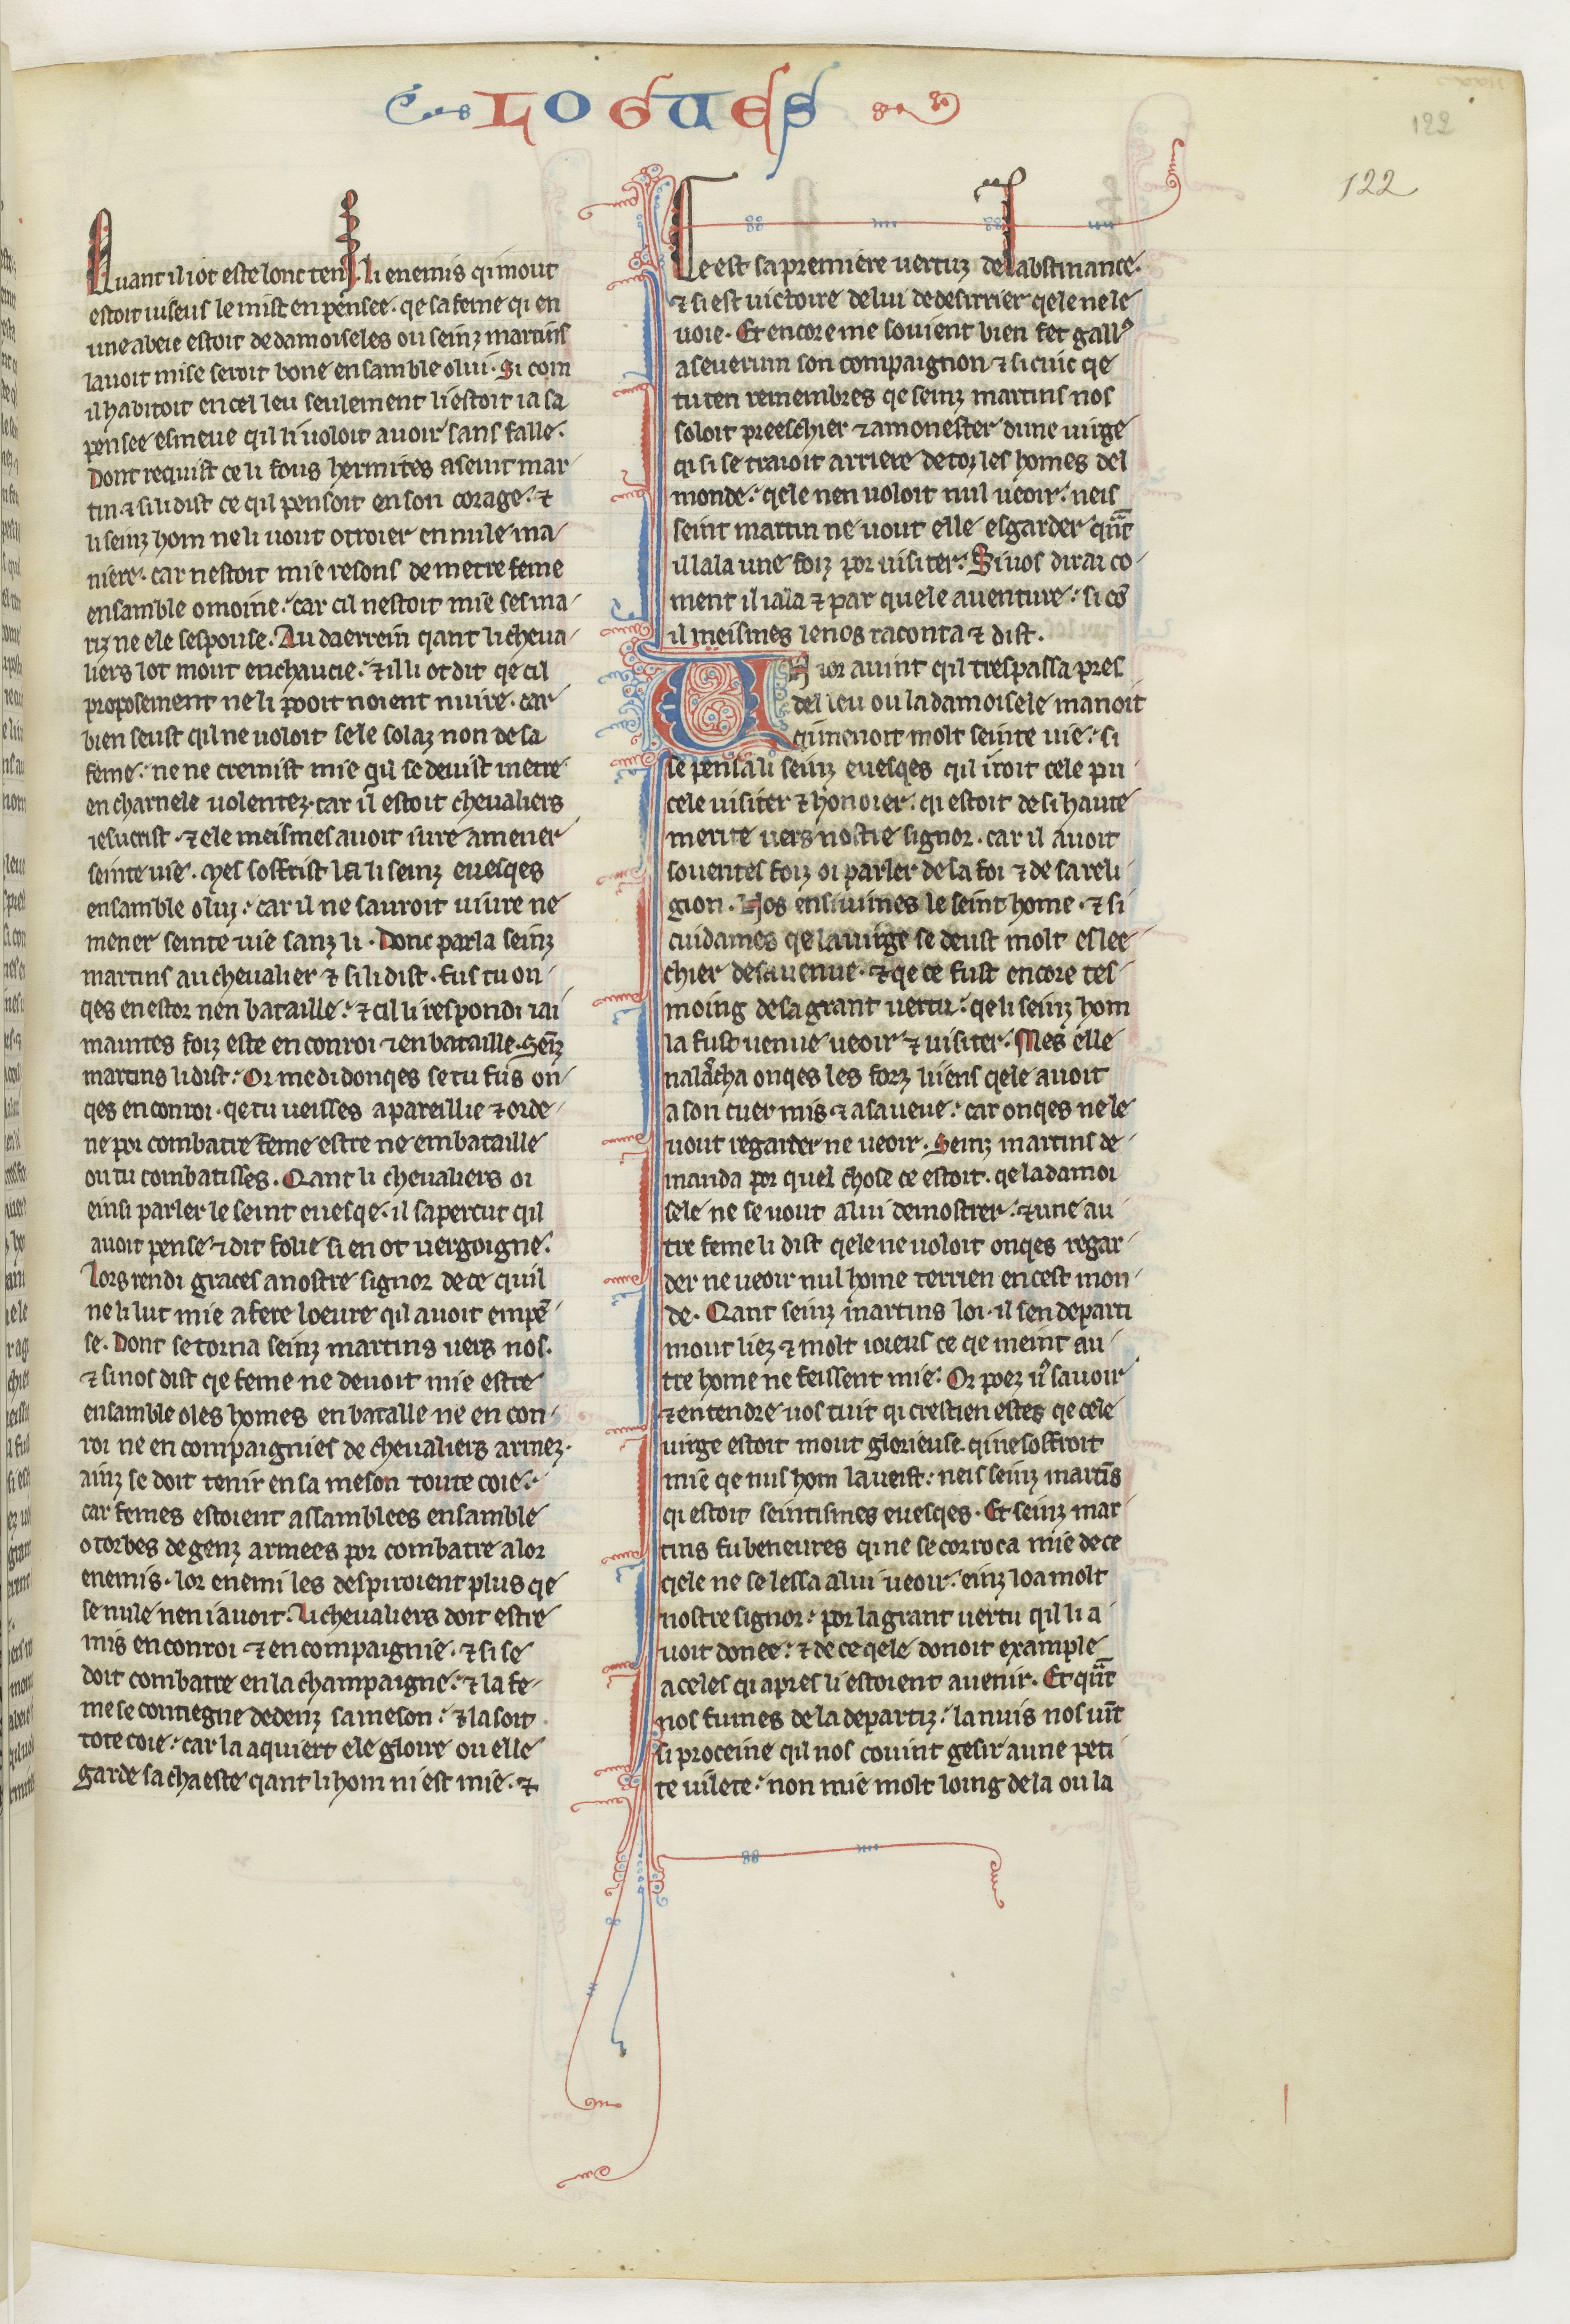 LOGUES
122
122
Quant il i ot este lonc tens. li enemis qi mout
estoit iuseus le mist en pensee. qe sa feme qi en
une abeie estoit de damoiseles ou seinz martins
lauoit mise seroit bone ensamble o lui. Si com
il habitoit en cel leu seulement li estoit ia sa
pensee esmeue qil li uoloit auoir sans falle.
Dont requist ce li fous hermites a seint mar-
tin. ⁊ si li dist ce qil pensoit en son corage. ⁊
li seinz hom ne li uout otroier en nule ma-
niere. car nestoit mie resons de metre feme
ensamble o moine. car cil nestoit mie ses ma-
riz ne ele sespouse. Au daerrein qant li cheua-
liers lot mout enchaucie. ⁊ il li ot dit qe cil
proposement ne li pooit noient nuire. car
bien seust qil ne uoloit se le solaz non de sa
feme. ne ne cremist mie qil se deuist metre
en charnele uolentez. car il estoit cheualiers
iesucrist. ⁊ ele meismes auoit iure a mener
seinte uie. Mes soffrist la li seinz euesqes
ensamble o luy. car il ne sauroit uiure ne
mener seinte uie sanz li. Donc parla seinz
martins au cheualier ⁊ si li dist. fus tu on-
qes en estor nen bataille. ⁊ cil li respondi iai
maintes foiz este en conroi ⁊ en bataille. Seīz
martins li dist. Or me di donqes se tu fus on-
qes en conroi. qe tu ueisses apareillie ⁊ orde-
ne por combatre feme estre ne em bataille
ou tu combatisses. Qant li cheualiers oi
einsi parler le seint euesqe. il sapercut qil
auoit pense ⁊ dit folie si en ot uergoigne.
Lors rendi graces a nostre signor de ce quil
ne li lut mie a fere loeure qil auoit empē-
se. Dont se torna seinz martins uers nos.
⁊ si nos dist qe feme ne deuoit mie estre
ensamble o les homes en batalle ne en con-
roi ne en compaignies de cheualiers armez.
ainz se doit tenir en sa meson toute coie.
car femes estoient assamblees ensamble
o torbes de genz armees por combatre a lor
enemis. lor enemi les despiroient plus qe
se nule nen i auoit. Li cheualiers doit estre
mis en conroi ⁊ en compaignie. ⁊ si se
doit combatre en la champaigne. ⁊ la fe-
me se contiegne dedenz sa meson. ⁊ la soit
tote coie. car la aquiert ele gloire ou elle
garde sa chaeste qant li hom ni est mie. ⁊
Ce est sa premiere uertuz de labstinance.
⁊ si est uictoire de lui de desirrier qe le ne le
uoie. Et encore me souient bien fet gallꝰ
a seuerum son compaignon ⁊ si cuic qe
tu ten remembres qe seinz martins nos
soloit preeschier ⁊ amonester dune uirge
qi si se traioit arriere de toz les homes del
monde. qele nen uoloit nul ueoir. neis
seint martin ne uout elle esgarder qn̄t
il lala une foiz por uisiter. Si uos dirai co-
ment il i ala ⁊ par quele auenture. si cō
il meismes le nos raconta ⁊ dist.
Un ior auint qil trespassa pres
del leu ou la damoisele manoit
qi menoit molt seinte uie. si
se pensa li seinz euesqes qil iroit cele pu-
cele uisiter ⁊ honorer. qi estoit de si haute
merite uers nostre signor. car il auoit
souentes foiz oi parler de sa foi ⁊ de sa reli-
gion. Nos ensiuimes le seint home. ⁊ si
cuidames qe la uirge se deust molt eslee-
chier de sa uenue. ⁊ qe ce fust encore tes-
moing de sa grant uertu. qe li seinz hom
la fust uenue ueoir ⁊ uisiter. Mes elle
nalascha onqes les forz liiens qele auoit
a son cuer mis ⁊ a sa ueue. car onqes ne le
uout regarder ne ueoir. Seinz martins de-
manda por quel chose ce estoit. qe la damoi
sele ne se uout a lui demostrer. ⁊ une au
tre feme li dist qele ne uoloit onqes regar-
der ne ueoir nul home terrien en cest mon-
de. Qant seinz martins loi. il sen departi
mout liez ⁊ molt ioieus ce qe meint au-
tre home ne feissent mie. Or poez uꝰ sauoir
⁊ entendre uos tuit qi crestien estes qe cele
uirge estoit mout glorieuse. qi ne soffroit
mie qe nus hom la ueist. neis seinz martīs
qi estoit seintismes euesqes. Et seinz mar-
tins fu beneures qi ne se corroca mie de ce
qele ne se lessa a lui ueoir. einz loa molt
nostre signor. por la grant uertu qil li a-
uoit donee. ⁊ de ce qele donoit example
a celes qi apres li estoient a uenir. Et qn̄t
nos fumes de la departiz. la nuis nos uīt
si proceine qil nos couint gesir a une peti
te uilete. non mie molt loing de la ou la